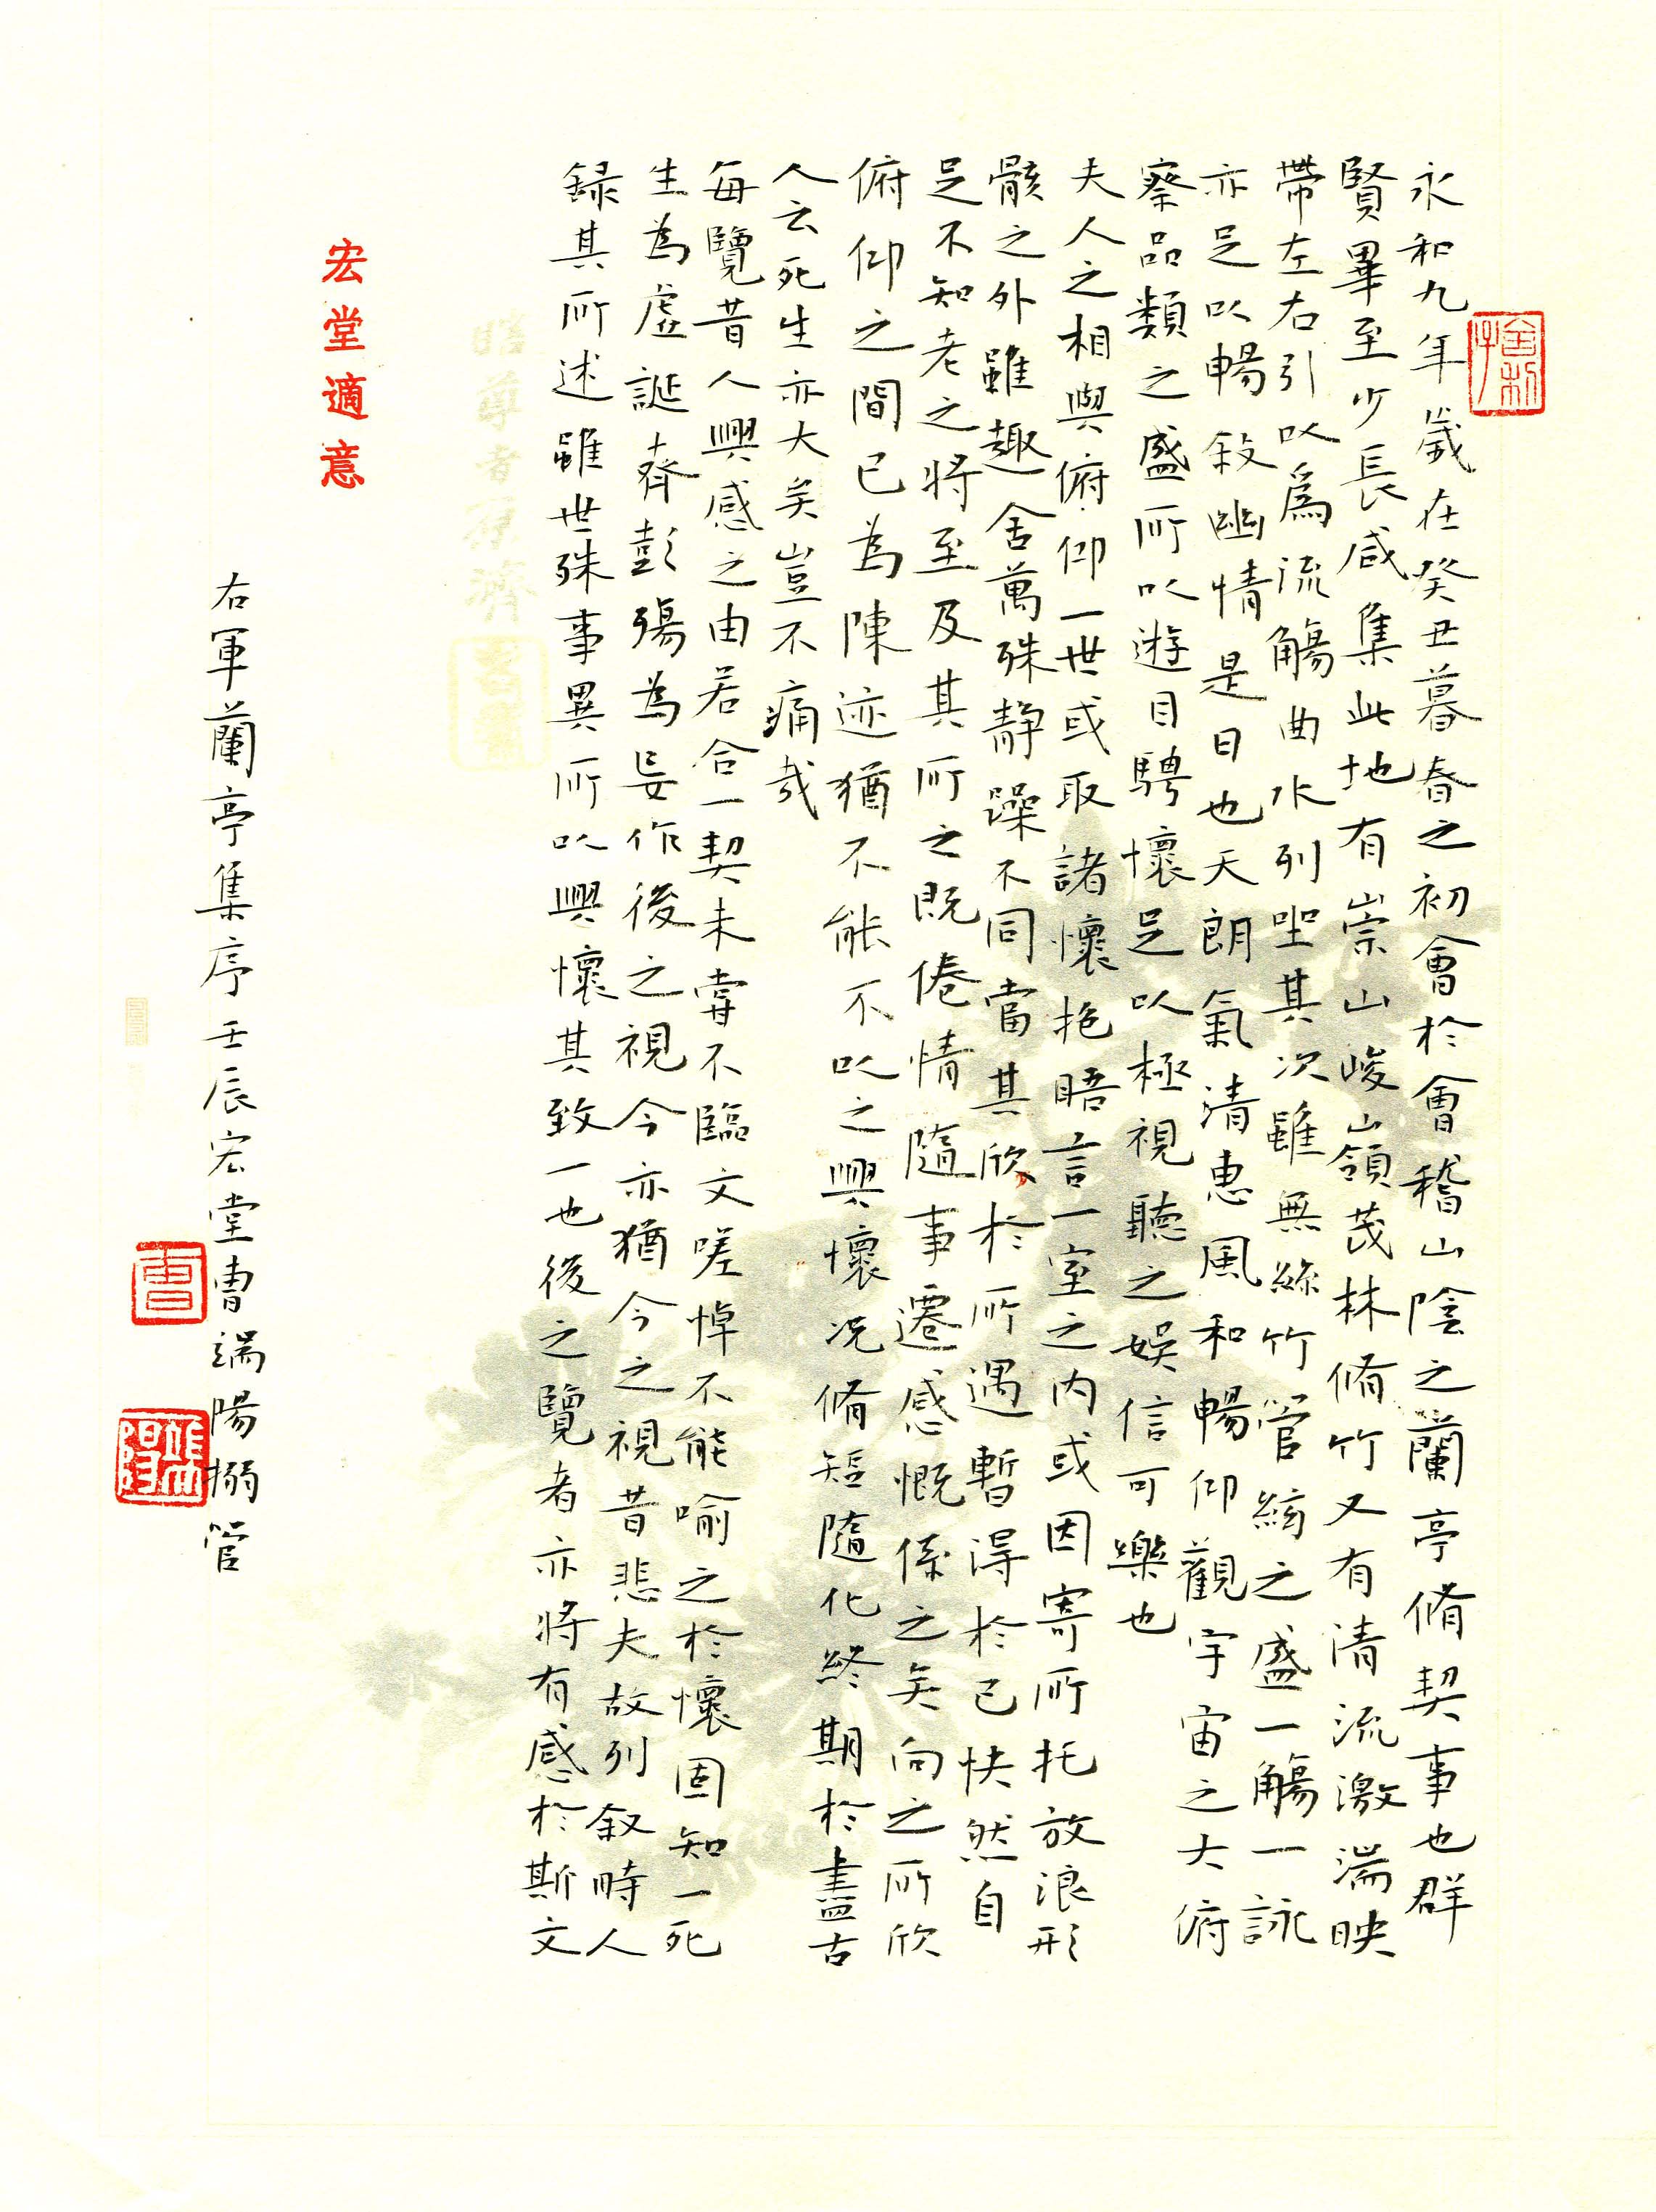 永和九年歲在癸丑暮春之初會於會稽山陰之蘭亭脩契事也群
賢畢至少長咸集此地有崇山峻嶺茂林脩竹又有清流激湍映
帶左右引以爲流觴曲水列坐其次雖無絲竹管絃之盛一觴一詠
亦足以暢敘幽情是日也天朗氣清惠風和暢仰觀宇宙之大俯
察品類之盛所以遊目騁懷足以極視聽之娛信可樂也
夫人之相與俯仰一世或取諸懷抱晤言一室之内或因寄所托放浪形
骸之外雖趣舍萬殊静躁不同當其欣於所遇暫得於己快然自
足不知老之將至及其所之既倦情隨事遷感慨係之矣向之所欣
俯仰之間已為陳迹猶不能不以之興懷况脩短隨化終期於盡古
人云死生亦大矣豈不痛哉
每覽昔人興感之由若合一契未嘗不臨文嗟悼不能喻之於懷固知一死
生為虛誕齊彭殤為妄作後之視今亦猶今之視昔悲夫故列叙時人
録其所述雖世殊事異所以興懷其致一也後之覽者亦將有感於斯文
宏堂適意
右軍蘭亭集序壬辰宏堂曹端陽搦管
曹
端陽